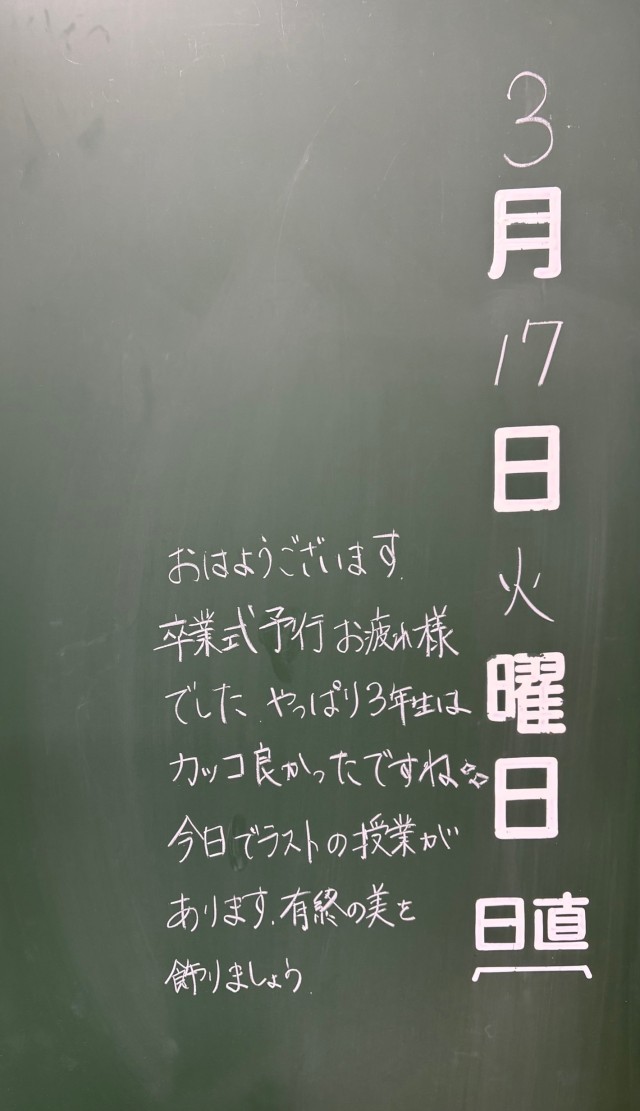 3月17日火曜日
日直
おはようございます.
卒業式予行お疲れ様
でした.やっぱり3年生は
カッコ良かったですね✨
今日でラストの授業が
あります.有終の美を
飾りましょう.